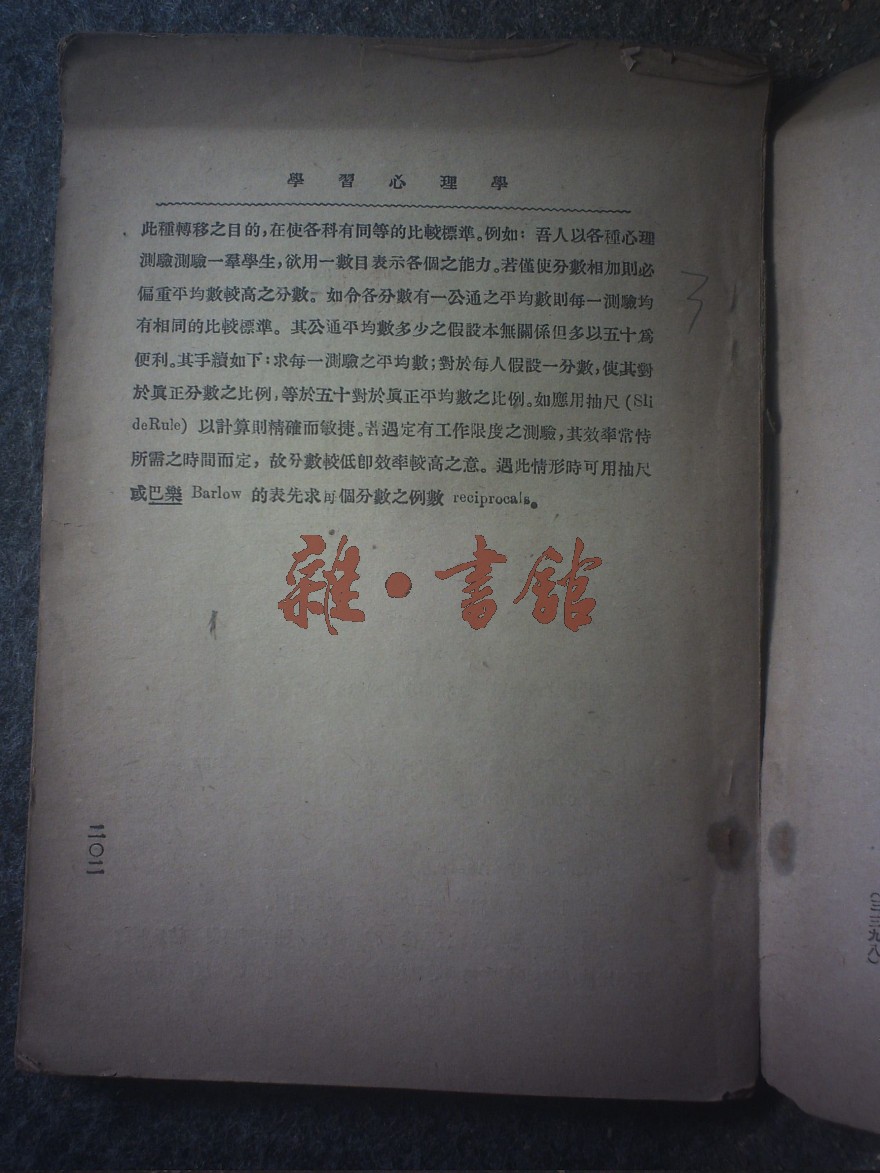 學習心理學
此種轉移之目的，在使各科有同等的比較標準。例如：吾人以各種心理
測驗測驗一羣學生，欲用一數目表示各個之能力。若僅使分數相加則必
偏重平均數較高之分數。如令各分數有一公通之平均數則每一測驗均
有相同的比較標準。其公通平均數多少之假設本無關係但多以五十爲
便利。其手續如下：求每一測驗之平均數；對於每人假設一分數，使其對
於眞正分數之比例，等於五十對於眞正平均數之比例。如應用抽尺 (Sli
deRule) 以計算則精確而敏捷。若遇定有工作限度之測驗，其效率常恃
所需之時間而定，故分數較低卽效率較高之意。遇此情形時可用抽尺
或巴樂 Barlow 的表先求每個分數之例數 reciprocals。
雜·書館
3
二〇二